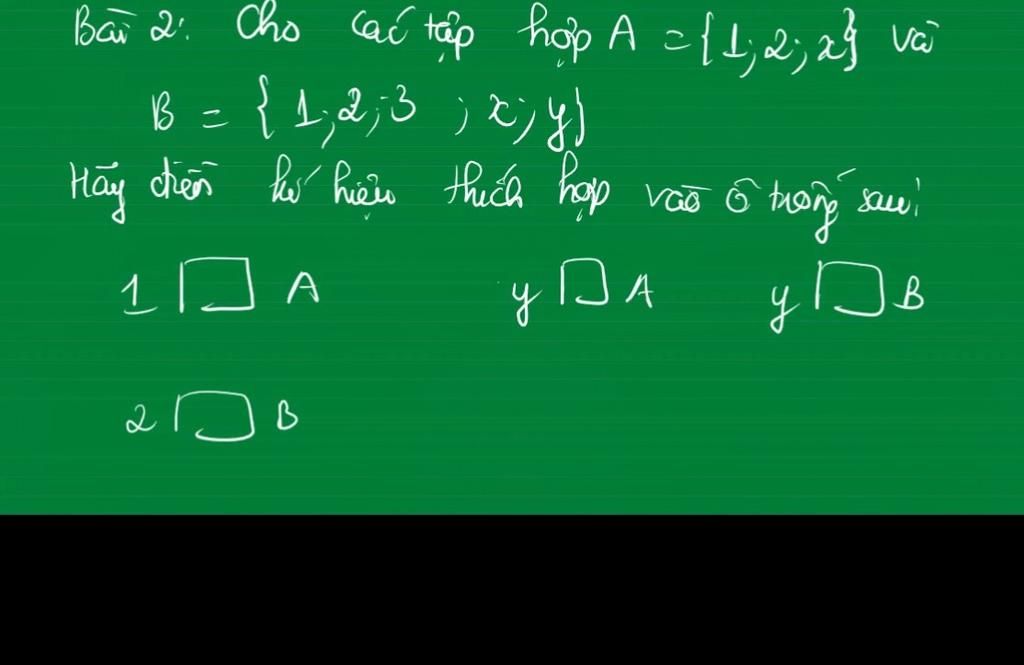 Bài 2: Cho các tập hợp A = {1; 2; x} và
B = {1; 2; 3 ; x; y}
Hãy điền kí hiệu thích hợp vào ô trống sau:
1 □ A y □ A y □ B
2 □ B